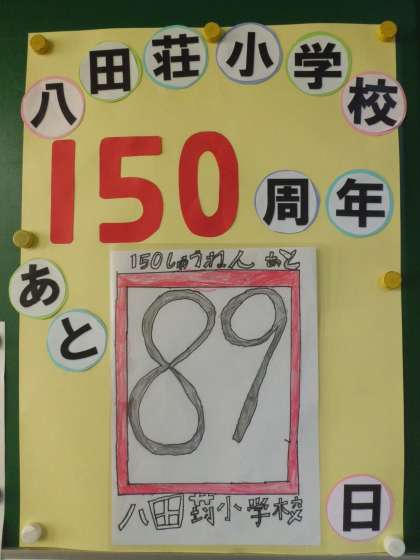 八田荘小学校
150周年
あと
150しゅうねん あと
89
八田荘小学校
日